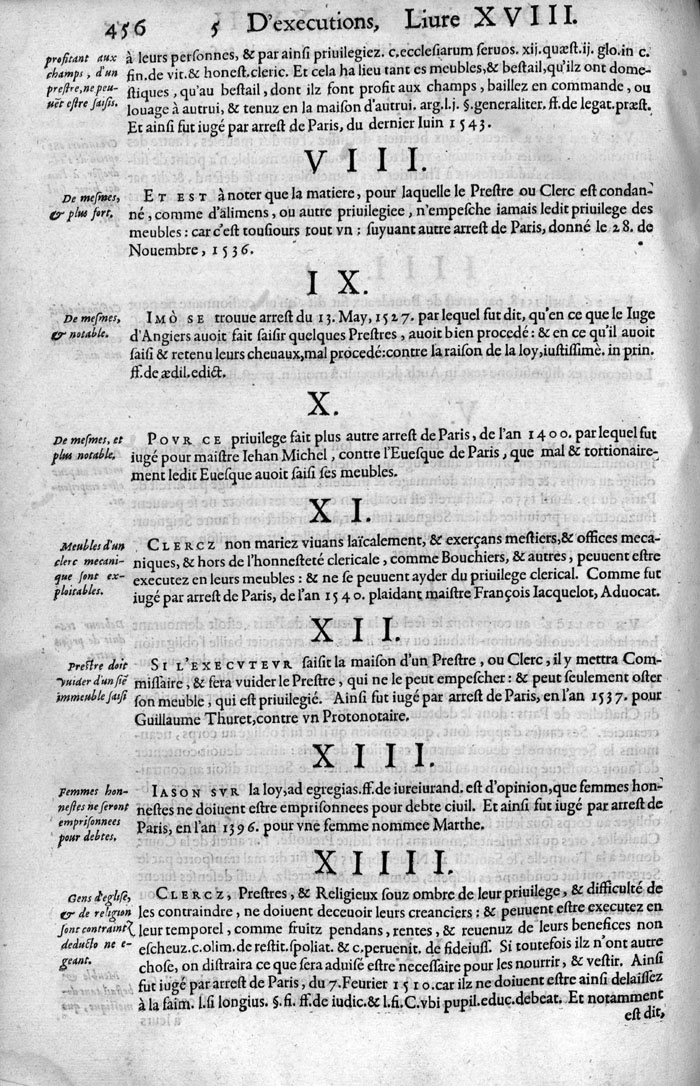 456 5 D'executions, Liure XVIII.
profitant aux
champs, d'un
prestre, ne peu-
uẽt estre saisis.
à leurs personnes, & par ainsi priuilegiez. c. ecclesiarum seruos. xij. quæst. ij. glo. in c.
fin. de vit. & honest. cleric. Et cela ha lieu tant es meubles, & bestail, qu'ilz ont dome-
stiques, qu'au bestail, dont ilz font profit aux champs, baillez en commande, ou
louage à autrui, & tenuz en la maison d'autrui. arg. l. j. §. generaliter. ff. de legat. præst.
Et ainsi fut iugé par arrest de Paris, du dernier Iuin 1543.
VIII.
De mesmes,
& plus fort.
ET EST à noter que la matiere, pour laquelle le Prestre ou Clerc est condan-
né, comme d'alimens, ou autre priuilegiee, n'empesche iamais ledit priuilege des
meubles: car c'est tousiours tout vn: suyuant autre arrest de Paris, donné le 28. de
Nouembre, 1536.
IX.
De mesmes,
& notable.
IMÒ SE trouue arrest du 13. May, 1527. par lequel fut dit, qu'en ce que le Iuge
d'Angiers auoit fait saisir quelques Prestres, auoit bien procedé: & en ce qu'il auoit
saisi & retenu leurs cheuaux, mal procedé: contre la raison de la loy, iustissimè. in prin.
ff. de ædil. edict.
X.
De mesmes, et
plus notable.
POVR CE priuilege fait plus autre arrest de Paris, de l'an 1400. par lequel fut
iugé pour maistre Iehan Michel, contre l'Euesque de Paris, que mal & tortionaire-
ment ledit Euesque auoit saisi ses meubles.
XI.
Meubles d'un
clerc mecani-
que sont ex-
ploitables.
CLERCZ non mariez viuans laïcalement, & exerçans mestiers, & offices meca-
niques, & hors de l'honnesteté clericale, comme Bouchiers, & autres, peuuent estre
executez en leurs meubles: & ne se peuuent ayder du priuilege clerical. Comme fut
iugé par arrest de Paris, de l'an 1540. plaidant maistre François Iacquelot, Aduocat.
XII.
Prestre doit
vuider d'un siẽ
immeuble saisi
SI L'EXECVTEVR saisit la maison d'un Prestre, ou Clerc, il y mettra Com-
missaire, & fera vuider le Prestre, qui ne le peut empescher: & peut seulement oster
son meuble, qui est priuilegié. Ainsi fut iugé par arrest de Paris, en l'an 1537. pour
Guillaume Thuret, contre vn Protonotaire.
XIII.
Femmes hon-
nestes ne seront
emprisonnees
pour debtes.
IASON SVR la loy, ad egregias. ff. de iureiurand. est d'opinion, que femmes hon-
nestes ne doiuent estre emprisonnees pour debte ciuil. Et ainsi fut iugé par arrest de
Paris, en l'an 1396. pour vne femme nommee Marthe.
XIIII.
Gens d'eglise,
& de religion
sont contraintz
deducto ne e-
geant.
CLERCZ, Prestres, & Religieux souz ombre de leur priuilege, & difficulté de
les contraindre, ne doiuent deceuoir leurs creanciers: & peuuent estre executez en
leur temporel, comme fruitz pendans, rentes, & reuenuz de leurs benefices non
escheuz. c. olim. de restit. spoliat. & c. peruenit. de fideiuss. Si toutefois ilz n'ont autre
chose, on distraira ce que sera aduisé estre necessaire pour les nourrir, & vestir. Ainsi
fut iugé par arrest de Paris, du 7. Feurier 1510. car ilz ne doiuent estre ainsi delaissez
à la faim. l. si longius. §. fi. ff. de iudic. & l. fi. C. vbi pupil. educ. debeat. Et notamment
est dit,